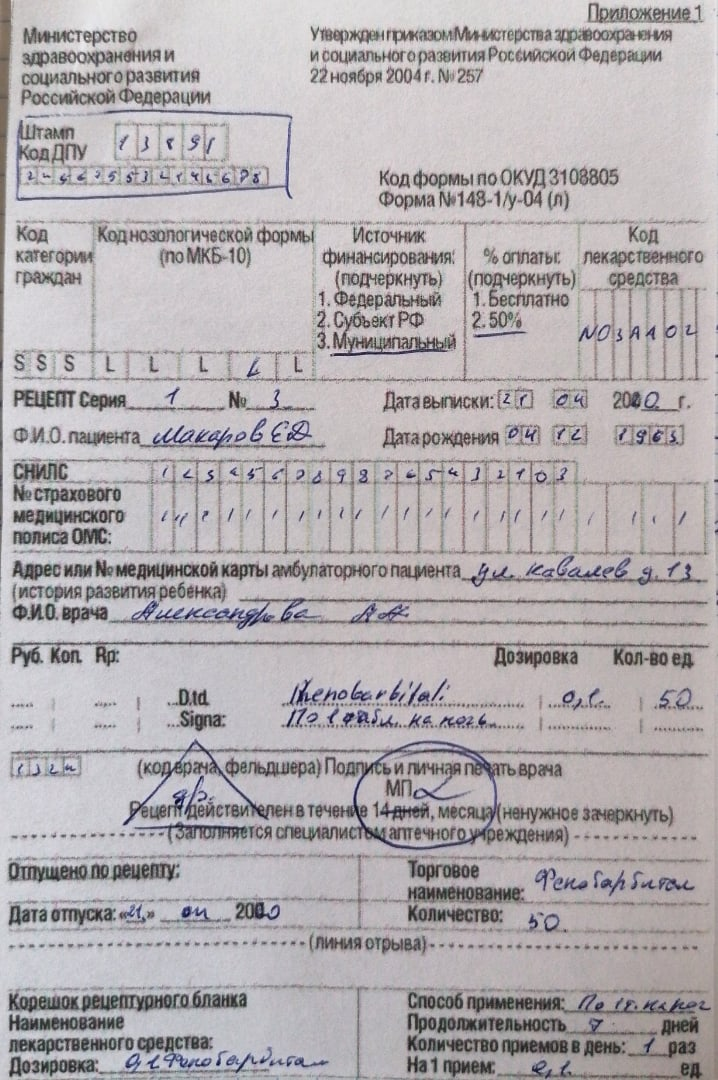 Приложение 1
Министерство
здравоохранения и
социального развития
Российской Федерации
Утвержден приказом Министерства здравоохранения
и социального развития Российской Федерации
22 ноября 2004 г. № 257
Штамп
Код ДПУ 13891
Код формы по ОКУД 3108805
Форма №148-1/у-04 (л)
Код
категории
граждан
Код нозологической формы
(по МКБ-10)
Источник
финансирования:
(подчеркнуть)
1. Федеральный
2. Субъект РФ
3. Муниципальный
% оплаты:
(подчеркнуть)
1. Бесплатно
2. 50%
Код
лекарственного
средства
N03AA02
S S S L L L L L
РЕЦЕПТ Серия 1 № 3 Дата выписки: 21 04 2020 г.
Ф.И.О. пациента Макаров ЕД Дата рождения 04 12 1963
СНИЛС
№ страхового
медицинского
полиса ОМС:
Адрес или № медицинской карты амбулаторного пациента ул. Кавалев д. 13
(история развития ребенка)
Ф.И.О. врача Александрова
Руб. Коп. Rp: Дозировка Кол-во ед.
D.t.d. Phenobarbitali 0,1 50
Signa: По 1 табл. на ночь
(код врача, фельдшера) Подпись и личная печать врача
МП
Рецепт действителен в течение 14 дней, месяца (ненужное зачеркнуть)
(Заполняется специалистом аптечного учреждения)
Отпущено по рецепту:
Торговое
наименование: Фенобарбитал
Дата отпуска: «21» 04 2020
Количество: 50
(линия отрыва)
Корешок рецептурного бланка
Наименование
лекарственного средства:
Дозировка: 0,1 Фенобарбитал
Способ применения: По 1т. на ноч
Продолжительность 7 дней
Количество приемов в день: 1 раз
На 1 прием: 0,1 ед.